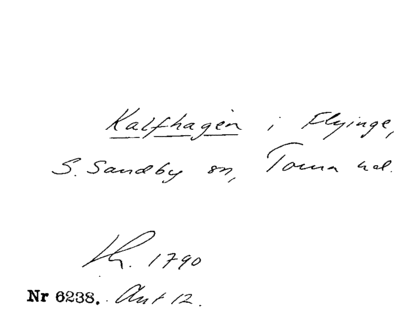 Kalfhagen i Flyinge,
S. Sandby sn, Torna hd.
Lh. 1790
Nr 6238. Akt 12.